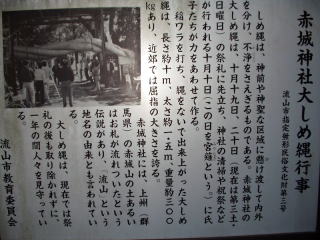 赤城神社大しめ縄行事
流山市指定無形民俗文化財第三号
しめ縄は、神前や神聖な区域に懸け渡して内外
を分け、不浄をさえぎるものである。赤城神社の
大しめ縄は、十月十九日、二十日（現在は第三土・
日曜日）の祭礼に先立ち、神社の清掃や祝祭など
が行われる十月十日（この日を宮薙という）に氏
子たちが力をあわせて作る。
稲ワラを打ち、縄をないで出来上がった大しめ
縄は、長さ約十m、太さ約一・五m、重量約三〇〇
kgあり、近郊では屈指の大きさを誇る。
赤城神社には、上州（群
馬県）の赤城山の土あるい
はお札が流れついたという
伝説があり、「流山」という
地名の由来とも言われてい
る。
大しめ縄は、現在では祭
礼の後も取り除かれずに、
一年の間人々を見守ってい
る。
流山市教育委員会